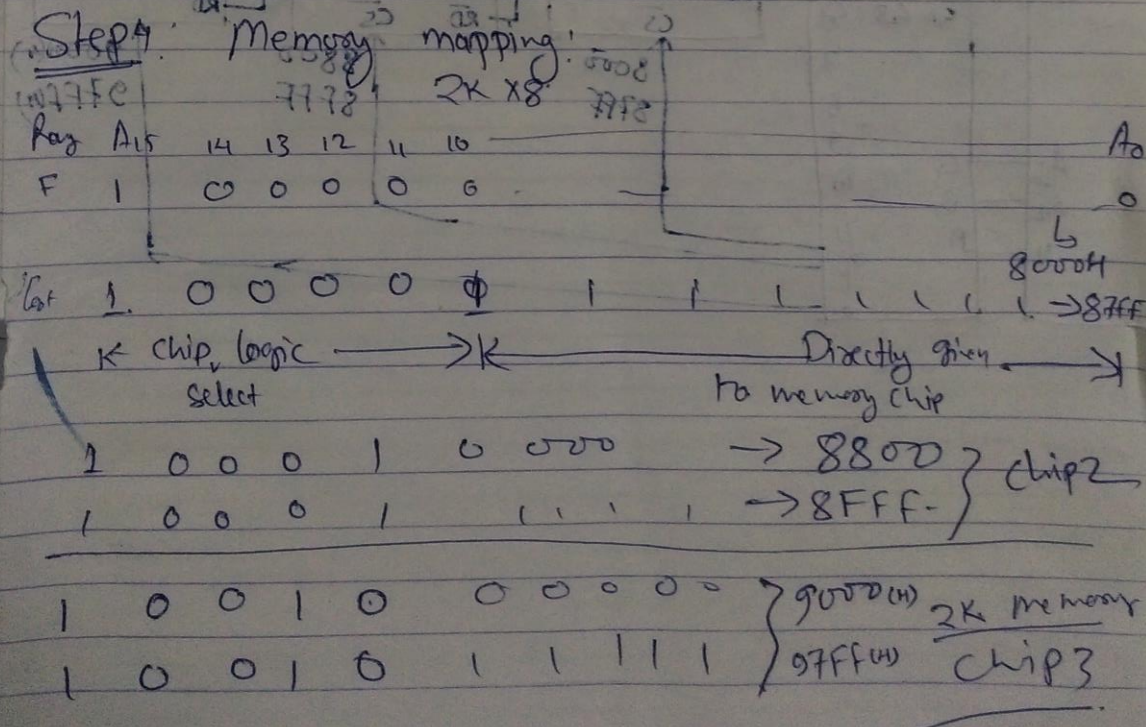 Step4: Memory mapping:
2K x8
Reg A15 14 13 12 11 10 A0
F 1 0 0 0 0 0 0
8000H
Last 1 0 0 0 0 1 1 1 1 1 1 1 1 → 87ff
chip logic select
Directly given to memory chip
1 0 0 0 1 0 0 0 0 → 8800
1 0 0 0 1 1 1 1 1 → 8FFF
chip2
1 0 0 1 0 0 0 0 0 0 9000(H)
1 0 0 1 0 1 1 1 1 1 97FF(H)
2K memory
Chip3